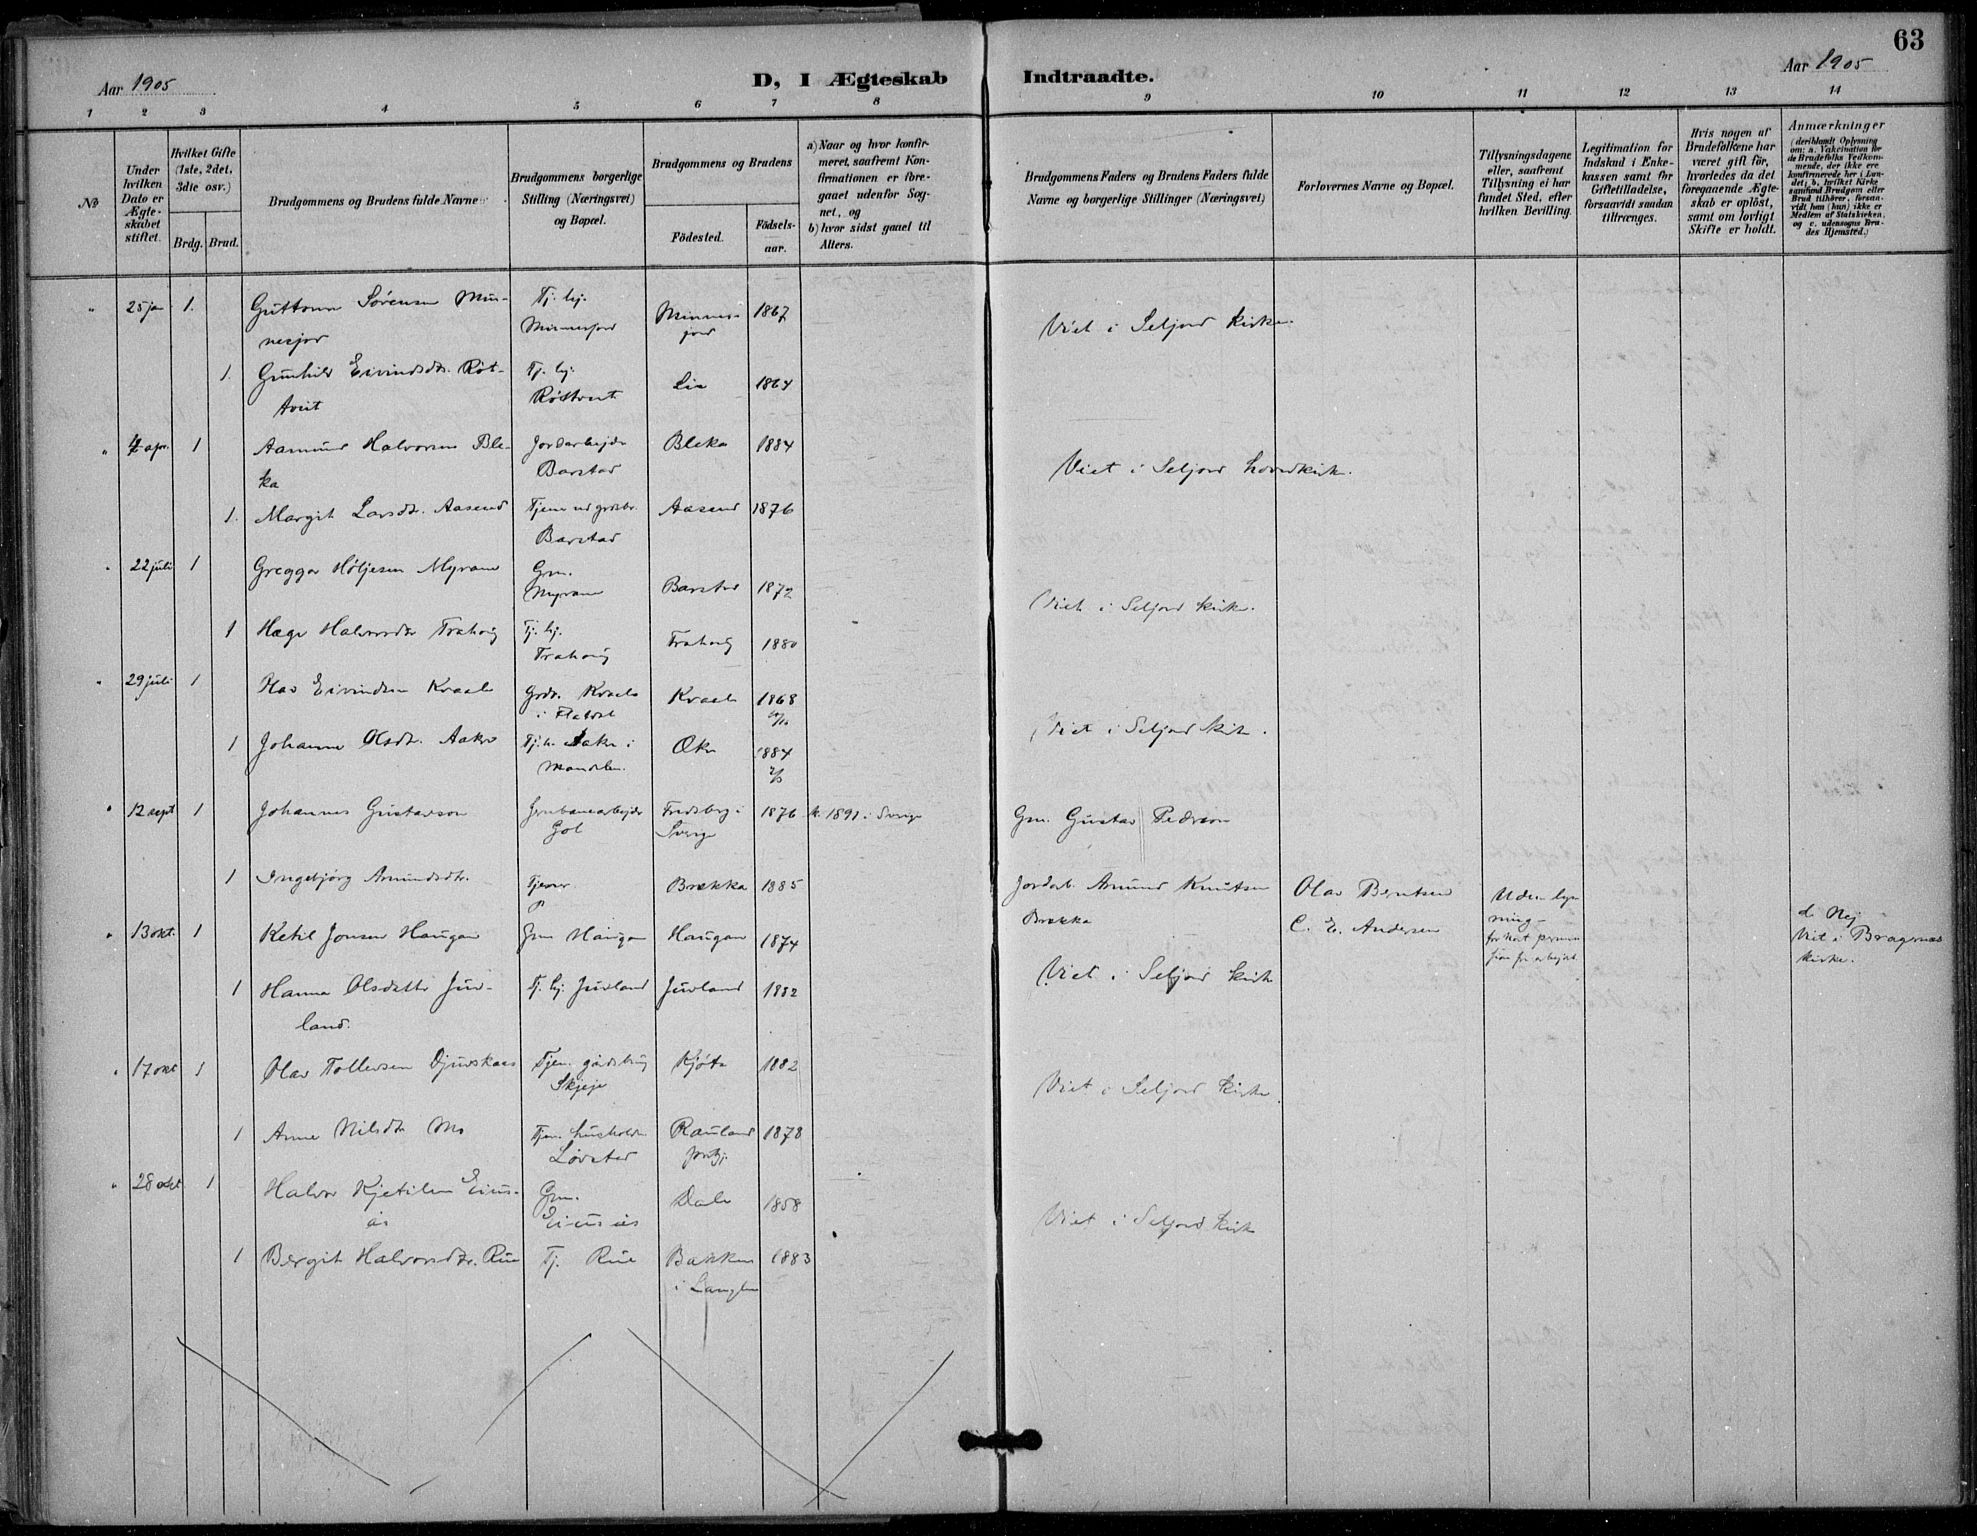 63
Aar 1905
D, I Ægteskab Indtraadte.
Aar 1905
1 2 3 4 5 6 7 8 9 10 11 12 13 14
No
Under hvilken Dato er Ægte-skabet stiftet.
Hvilket Gifte (1ste, 2det, 3die osv.)
Brdg. Brud.
Brudgommens og Brudens fulde Navne
Brudgommens borgerlige Stilling (Næringsvei) og Bopæl.
Brudgommens og Brudens
Fødested.
Fødsels-aar.
a) Naar og hvor konfir-meret, saafremt Kon-firmationen er fore-gaaet udenfor Sog-net, og
b) hvor sidst gaaet til Alters.
Brudgommens Faders og Brudens Faders fulde Navne og borgerlige Stillinger (Næringsvei)
Forlovernes Navne og Bopæl.
Tillysningsdagene eller, saafremt Tillysning ei har fundet Sted, efter hvilken Bevilling.
Legitimation for Indskud i Enke-kassen samt for Giftetilladelse, forsaavidt saadan tiltrænges.
Hvis nogen af Brudefolkene har været gift før, hvorledes da det foregaaende Ægte-skab er opløst, samt om lovligt Skifte er holdt.
Anmærkninger
(deriblandt Oplysning om: a. Vakcination for de Brudefolks Vedkom-mende, der ikke ere konfirmerede her i Lan-det; b. hvilket Kirke-samfund Brudgom eller Brud tilhører, forsaa-vidt han (hun) ikke er Medlem af Statskirken, og c. udensogns Bru-des Hjemsted.)
" 25 jan 1. Guttorm Sørensen Min-
nesjor
Tj. hj. Minnesjord
Minnes-
jord
1867
Viet i Seljord kirke.
1. Gunhild Eivindsdtr. Røt-
tveit
Tj. hj. Røttveit
Lia 1864
" 4 apr. 1 Aamund Halvorsen Ble-
ka
Jordarbejder Barstad
Bleka 1884
Viet i Seljord hovedkirke.
1. Margit Larsdtr. Aasend
Tjener ved grdsbr. Barstad
Aasend 1876
" 22 juli 1 Greggar Høljesen Myrane
Gm. Myrane
Barstad 1872
Viet i Seljord kirke.
1 Hæge Halvorsdtr
Tj. hj.
1880
" 29 juli 1 Olav Eivindsen Kvaale
Grdr. Kvaale
i Flatdal
Kvaale 1868
Viet i Seljord kirke.
1 Johanne Olsdtr. Aakre
Tj. h. Aakre i
Mandalen.
1884
" 12 sept 1 Johannes Gustavson
Jernbanearbejder
Gol
Fredsberg i
Sverge
1876 k. 1891 i Sverge
Gm. Gustav Pederson
1 Ingebjørg Amundsdtr.
Tjener
Brækka 1885
Jordarb. Amund Knutsen
Brækka
Olav Berntsen
C. E. Andersen
Uden lys-
ning
d. Nej
Viet i Bragernæs
kirke.
" 13 okt. 1 Ketil Jonsen Haugan
Gm Haugan
Haugan 1874
Viet i Seljord kirke
1 Hanna Olsdatter Juv-
land.
Tj. hj. Juvland
Juvland 1882
" 17 okt 1 Olav Tollevsen Djuvskaas
Tjen. gårdsbrug
Skjeje
Kjøta 1882
Viet i Seljord kirke.
1 Anne Nilsdtr Mo
Tjen. husholdn
Løvstad
Rauland
prstgj.
1878
" 28 okt 1 Halvor Kjetilsen
Gm.
Dale 1858
Viet i Seljord kirke
1 Bergit Halvorsdtr. Rue
Tj. Rue
Bakken
i Langlim
1883